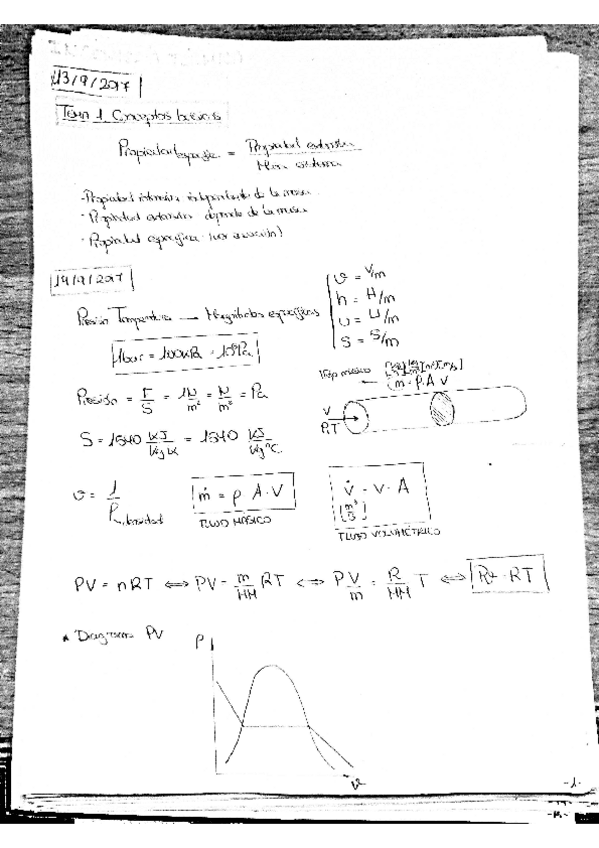 13/9/2017
Tema 1 Conceptos básicos
Propiedad específica = Propiedad extensiva / Masa sistema
- Propiedad intensiva independiente de la masa
· Propiedad extensiva depende de la masa
· Propiedad específica
14/9/2017
Presión Temperatura → Magnitudes específicas
v = V/m
h = H/m
u = U/m
s = S/m
1bar = 100kPa = 10⁵Pa
Flujo másico
ṁ = ρ·A·v
V
P,T
Presión = F/S = 1N/m² = N/m² = Pa
S = 1540 kJ/kgK = 1540 kJ/kgºC
v = 1/ρ densidad
ṁ = ρ·A·V
FLUJO MÁSICO
v̇ = v·A
[m³/s]
FLUJO VOLUMÉTRICO
PV = nRT ⟺ PV = m/MM RT ⟺ P V/m = R/MM T ⟺ Pv = RT
* Diagrama PV
P
v
-1-